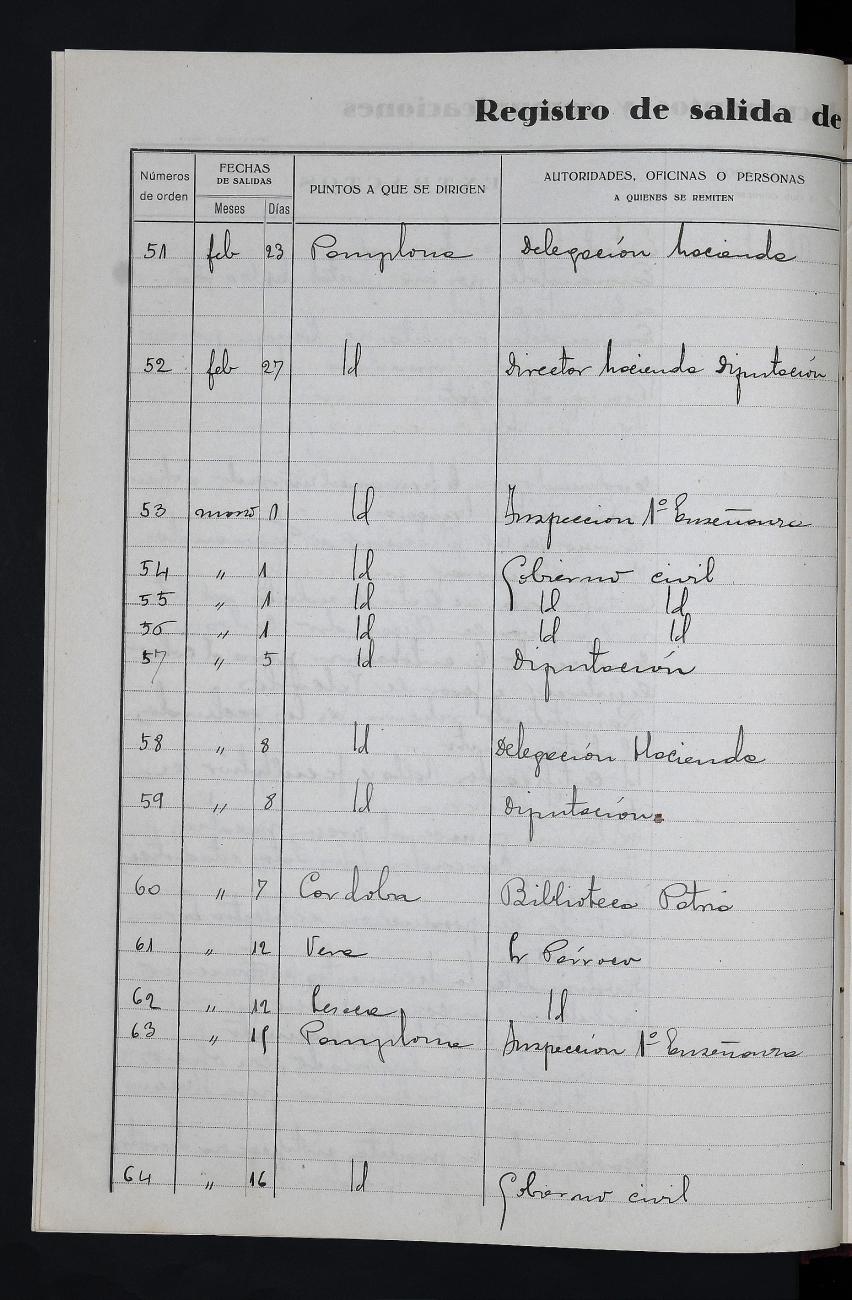 Registro de salida de
Números de orden
FECHAS DE SALIDAS
Meses Días
PUNTOS A QUE SE DIRIGEN
AUTORIDADES, OFICINAS O PERSONAS A QUIENES SE REMITEN
51 feb 23 Pamplona Delegación hacienda
52 feb 27 Id Director hacienda Diputación
53 marzo 1 Id Inspeccion 1º Enseñanza
54 " 1 Id Gobierno civil
55 " 1 Id Id Id
56 " 1 Id Id Id
57 " 5 Id Diputación
58 " 8 Id Delegación Hacienda
59 " 8 Id Diputación.
60 " 7 Cordoba Biblioteca Patria
61 " 12 Vera Sr Párroco
62 " 12 Lesaca Id
63 " 15 Pamplona Inspección 1º Enseñanza
64 " 16 Id Gobierno civil